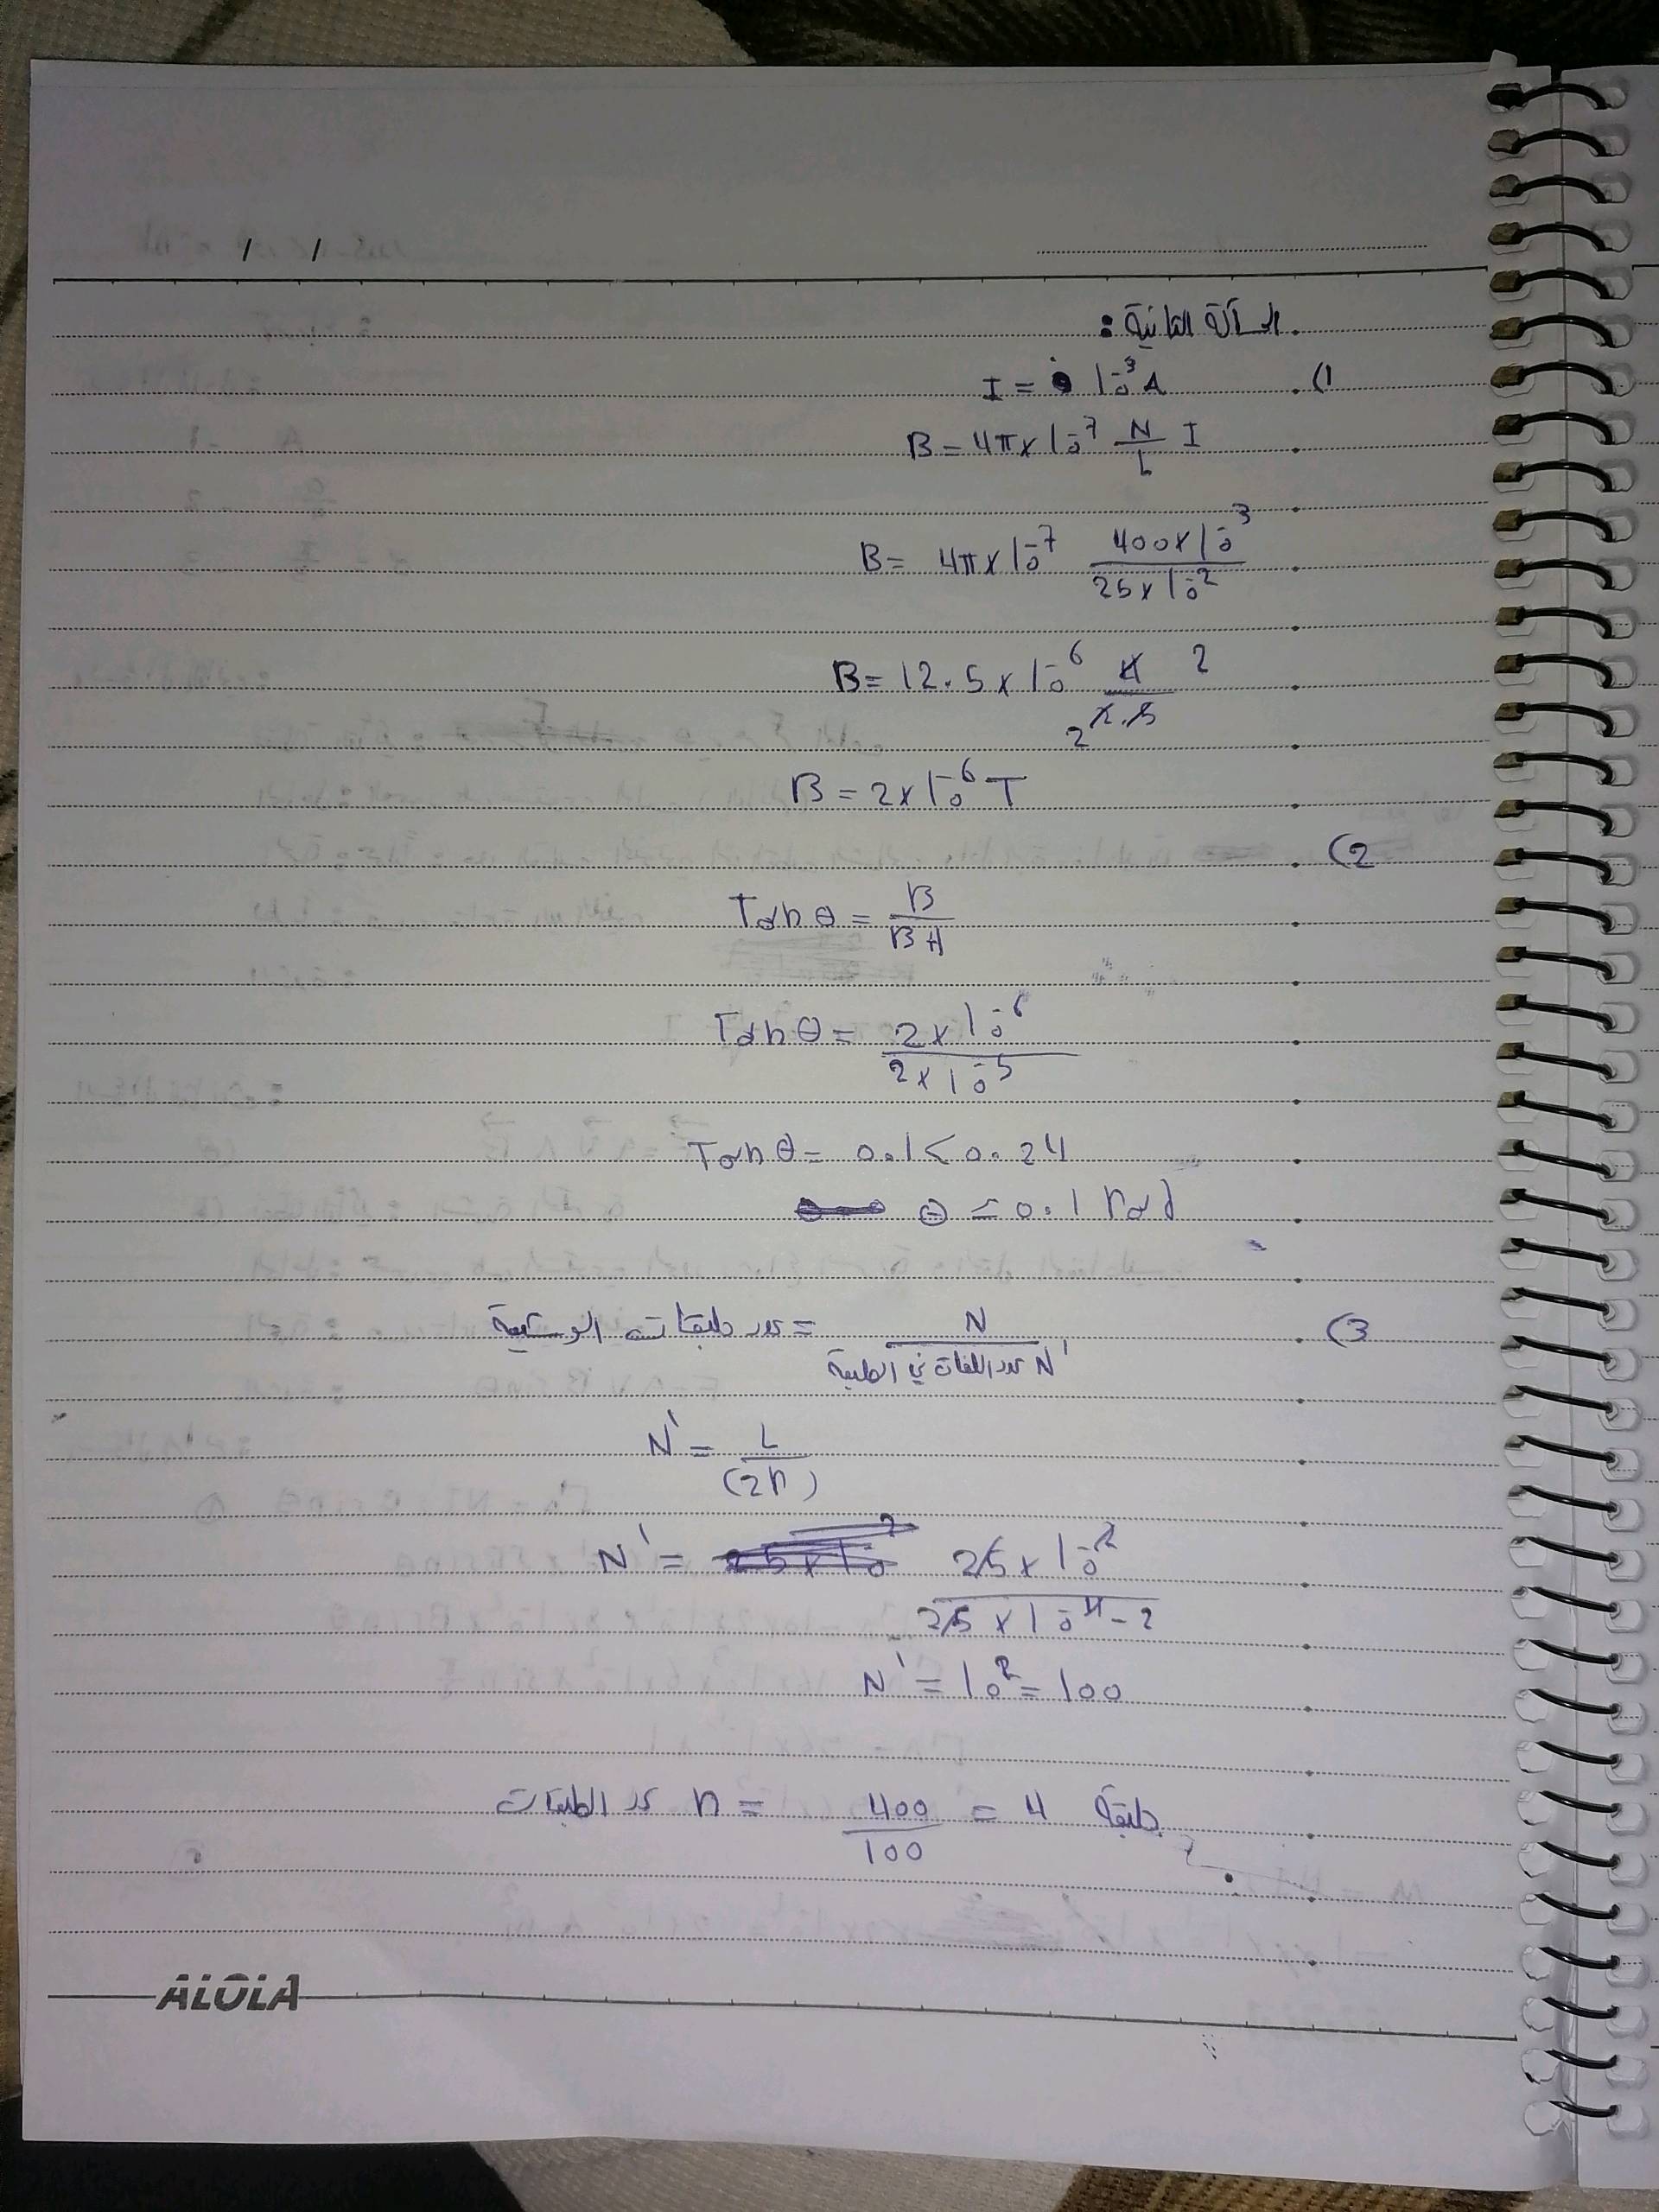 / /
المسألة الثانية:
1) I = 10⁻³ A
B = 4π x 10⁻⁷ N/L I
B = 4π x 10⁻⁷ 400 x 10⁻³ / 25 x 10⁻²
B = 12.5 x 10⁻⁶ 4 2 / 2.5 2
B = 2 x 10⁻⁶ T
2)
Tan θ = B / BH
Tan θ = 2 x 10⁻⁶ / 2 x 10⁻⁵
Tan θ = 0.1 < 0.24
θ ≃ 0.1 rad
3) عدد طبقات الوشيعة = N / N' عدد اللفات في الطبقة
N' = L / (2r)
N' = 25 x 10⁻² / 25 x 10⁻⁴ ⁻ ²
N' = 10² = 100
عدد الطبقات n = 400 / 100 = 4 طبقة
ALOLA